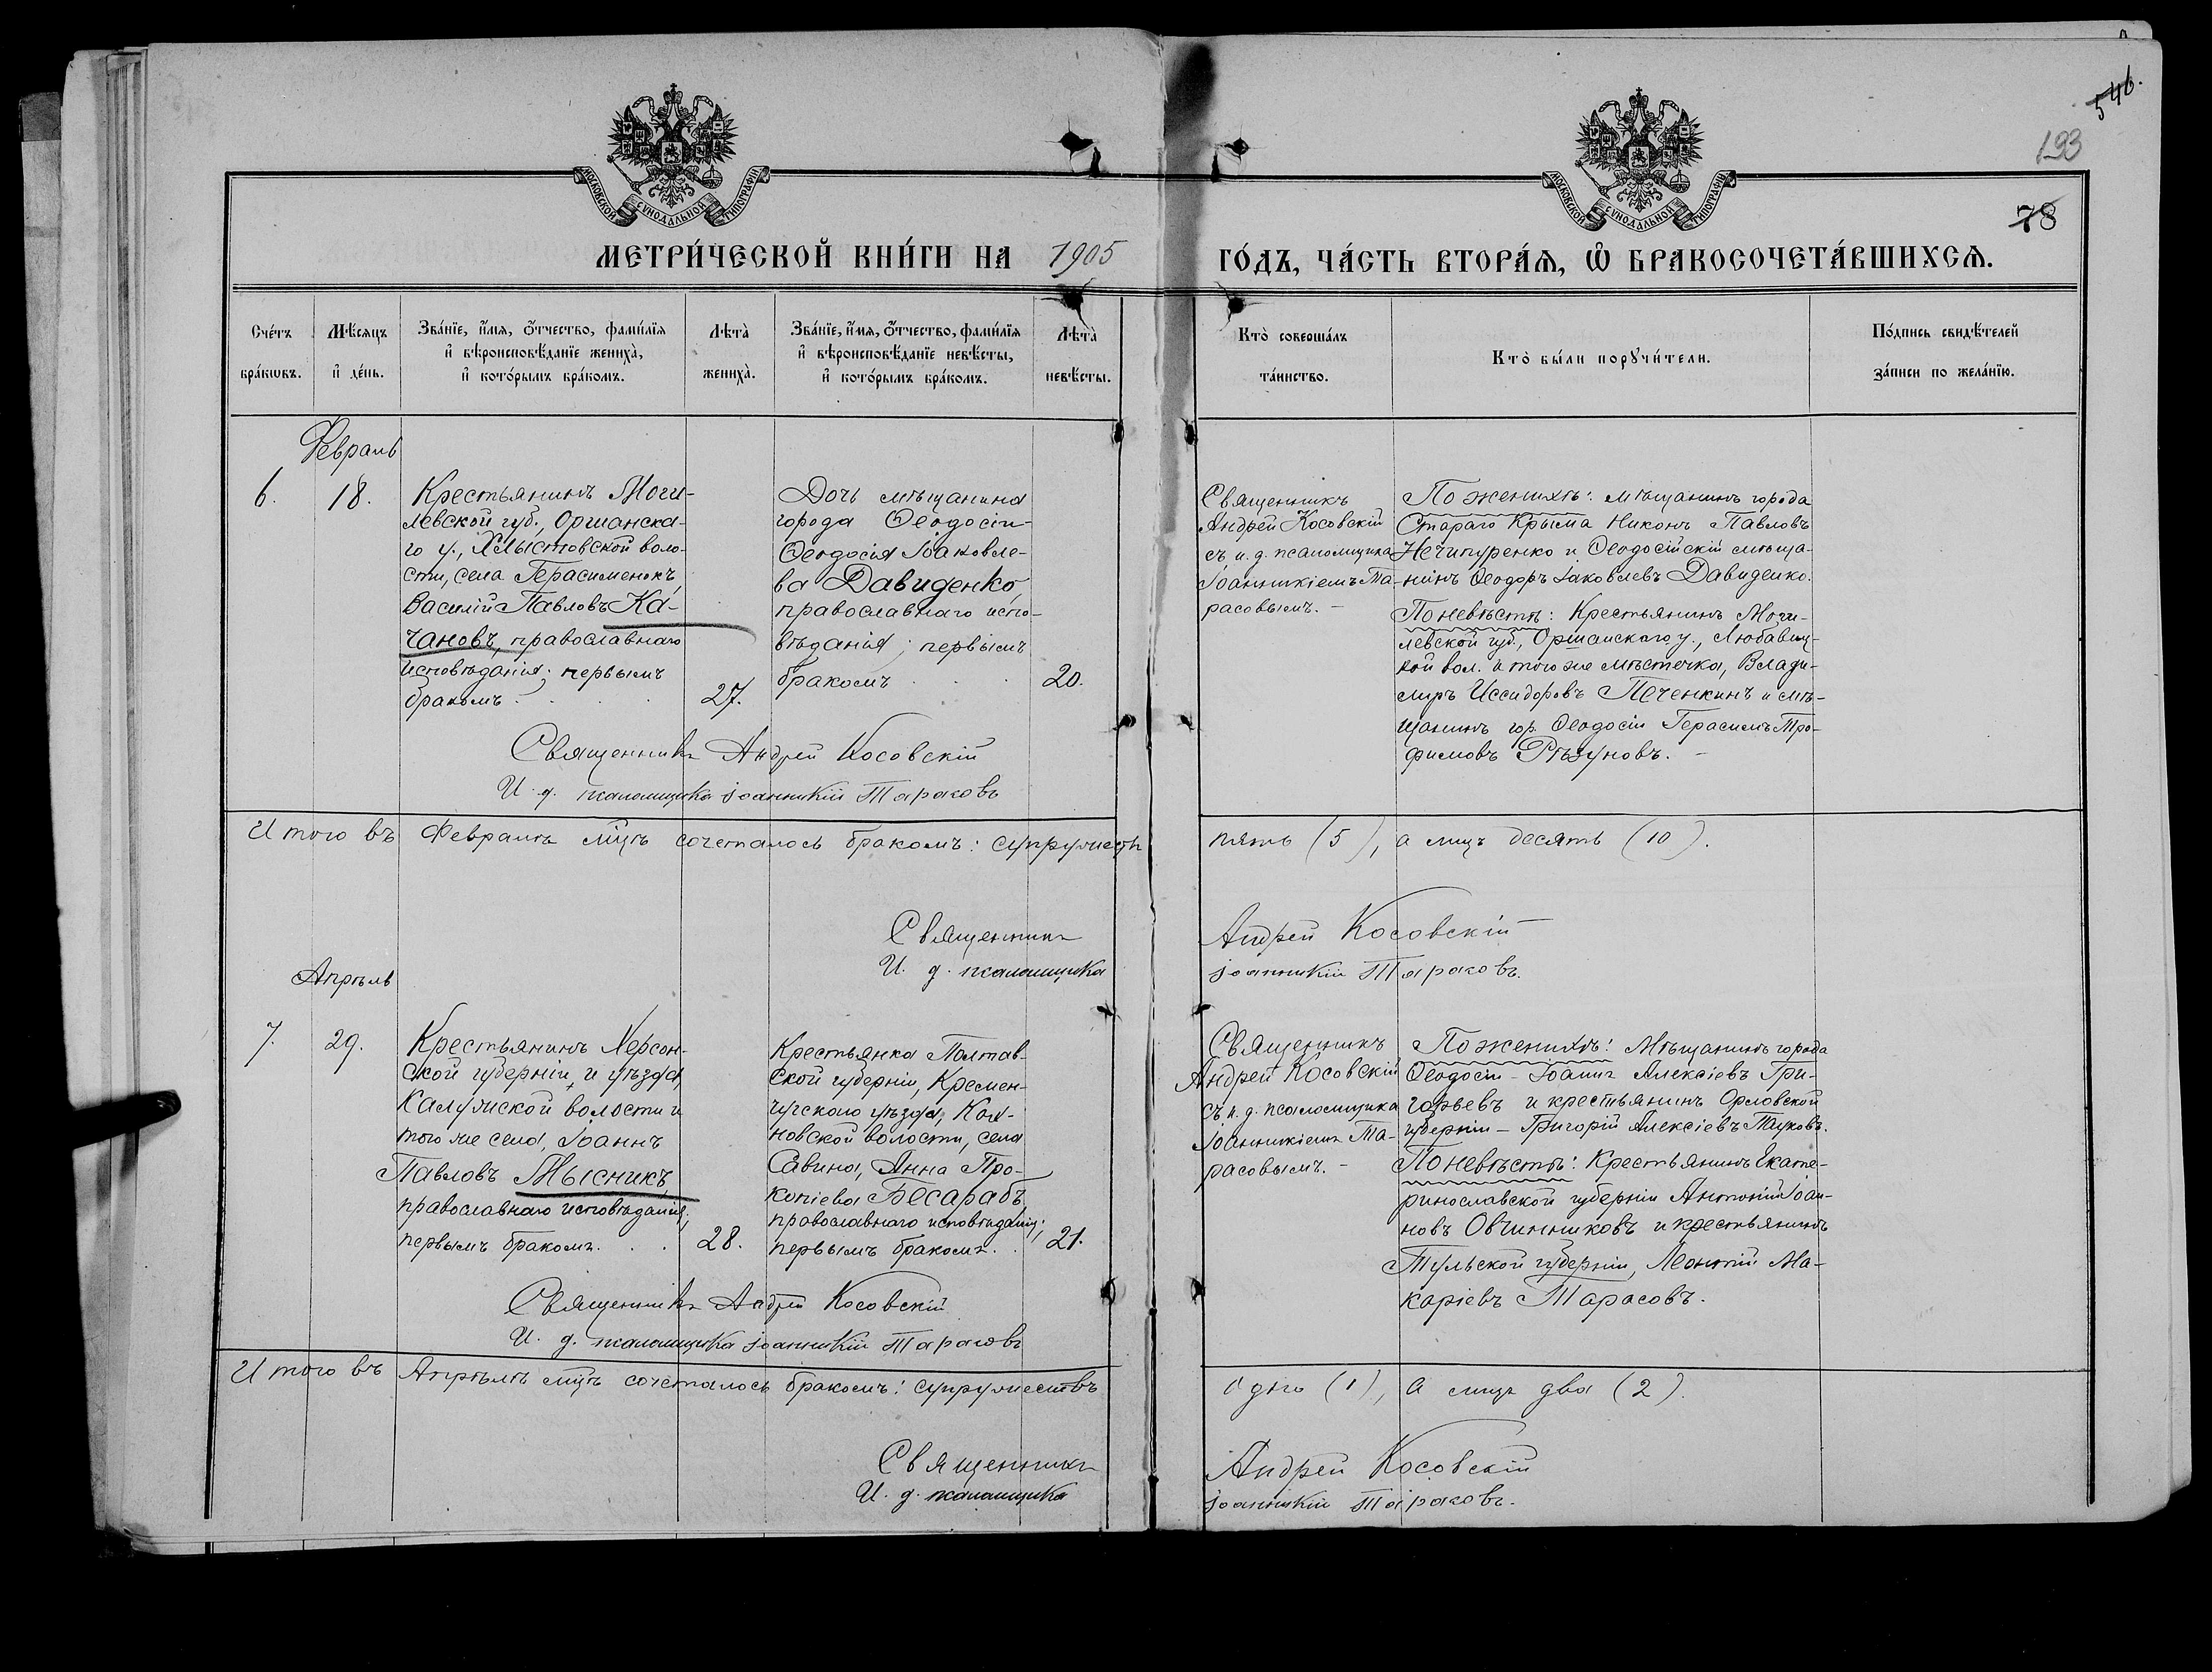 546.
193
78
МОСКОВСКОЙ СѴНОДАЛЬНОЙ ТИПОГРАФІИ
МОСКОВСКОЙ СѴНОДАЛЬНОЙ ТИПОГРАФІИ
МЕТРИ́ЧЕСКОЙ КНИ́ГИ НА 1905 ГО́ДЪ, ЧА́СТЬ ВТОРА́Я, Ѡ҆ БРАКОСОЧЕТА́ВШИХСѦ.
Сче́тъ
бра́кѡвъ.
Мѣ́сѧцъ
и҆ де́нь.
Зва́нїе, и҆́мѧ, ѻ҆́тчество, фами́лїѧ
и҆ вѣроисповѣ́данїе жениха̀,
и҆ кото́рымъ бра́комъ.
Лѣ́та̀
жениха̀.
Зва́нїе, и҆́мѧ, ѻ҆́тчество, фами́лїѧ
и҆ вѣроисповѣ́данїе невѣ́сты,
и҆ кото́рымъ бра́комъ.
Лѣ́та̀
невѣ́сты.
Кто̀ соверша́лъ
та́инство.
Кто̀ бы́ли порꙋчи́тели.
По́дпись свидѣ́телей
за́писи по жела́нїю.
Февраль
6.
18.
Крестьянинъ Моги-
левской губ., Оршанска-
го у., Хлыстовской воло-
сти, села Герасименокъ
Василій Павловъ Ка-
чановъ, православнаго
исповѣданія; первымъ
бракомъ
27.
Дочь мѣщанина
города Ѳеодосіи-
Ѳеодосія Іаковле-
ва Давиденко,
православнаго испо-
вѣданія; первымъ
бракомъ
20.
Священникъ
Андрей Косовскій
съ и. д. псаломщика
Іоанникіемъ Та-
расовымъ. –
По женихѣ: мѣщанинъ города
Стараго Крыма Никонъ Павловъ
Нечипуренко и Ѳеодосійскій мѣща-
нинъ Ѳеодоръ Іаковлевъ Давиденко.
По невѣстѣ: Крестьянинъ Моги-
левской губ., Оршанскаго у., Любавиц-
кой вол. и того же мѣстечка, Влади-
миръ Иссидоровъ Печенкинъ и мѣ-
щанинъ гор. Ѳеодосіи Герасимъ Тро-
фимовъ Рѣзуновъ. –
Священникъ Андрей Косовскій
И. д. псаломщика Іоанникій Тарасовъ
Итого въ Февралѣ мцѣ сочеталось бракомъ: супружествъ пять (5), а лицъ десять (10).
Священникъ Андрей Косовскій
И. д. псаломщика Іоанникій Тарасовъ.
Апрѣль
7.
29.
Крестьянинъ Херсон-
ской губерніи и уѣзда,
Калужской волости и
того же села, Іоаннъ
Павловъ Мысникъ,
православнаго исповѣданія;
первымъ бракомъ. . .
28.
Крестьянка Полтав-
ской губерніи, Кремен-
чугскаго уѣзда,
новской волости, села
Савина, Анна Про-
копіева Бесарабъ,
православнаго исповѣданія;
первымъ бракомъ. .
21.
Священникъ
Андрей Косовскій
съ и. д. псаломщика
Іоанникіемъ Та-
расовымъ. –
По женихѣ: Мѣщанинъ города
Ѳеодосіи – Іоаннъ Алексіевъ Гри-
горьевъ и крестьянинъ Орловской
губерніи – Григорій Алексіевъ
По невѣстѣ: Крестьянинъ Екате-
ринославской губерніи Антоній Іоан-
новъ Овчинниковъ и крестьянинъ
Тульской губерніи, Леонтій Ма-
каріевъ Тарасовъ.
Священникъ Андрей Косовскій
И. д. псаломщика Іоанникій Тарасовъ
Итого въ Апрѣлѣ мцѣ сочеталось бракомъ: супружествъ одно (1), а лицъ два (2).
Священникъ Андрей Косовскій
И. д. псаломщика Іоанникій Тарасовъ.